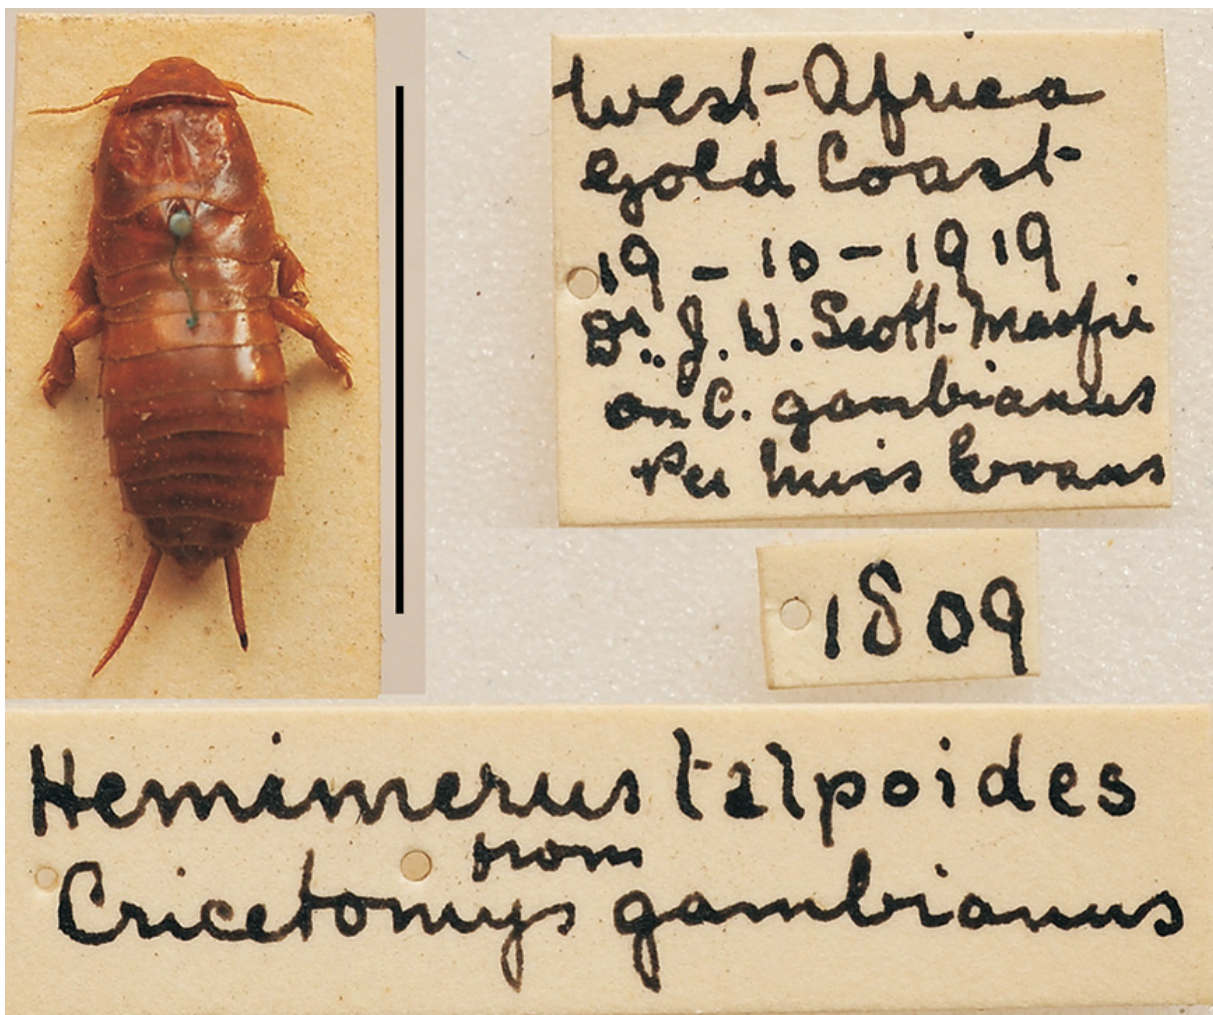 West-Africa
Gold Coast
19-10-1919
Dr. J. W. Scott-Macfie
on C. gambianus
Per Miss Evans
1809
Hemimerus talpoides
from
Cricetomys gambianus